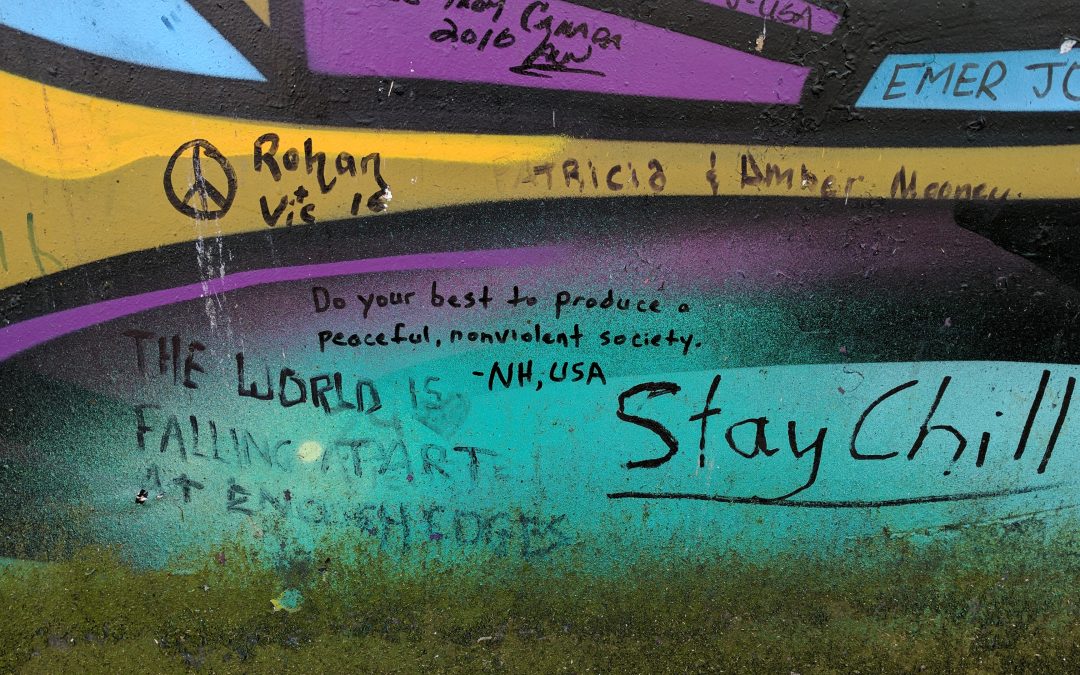 from Canada
2010
USA
EMER JO
Rohan
+
Vis 16
PATRICIA & Amber Meeney
Do your best to produce a
peaceful, nonviolent society.
-NH, USA
THE WORLD IS
FALLING APART
AT ENOUGH EDGES
Stay Chill